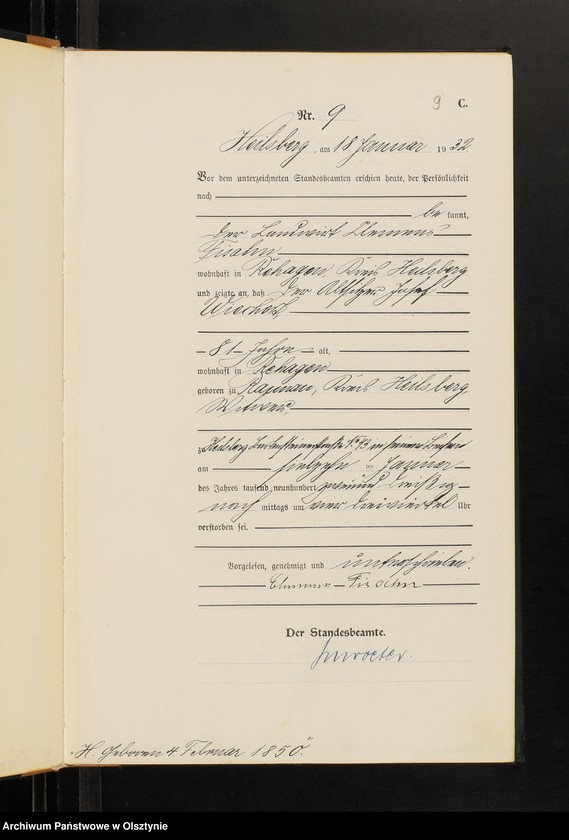 9 C.
Nr. 9
Heilsberg, am 18 Januar 1932
Vor dem unterzeichneten Standesbeamten erschien heute, der Persönlichkeit
nach
be kannt,
der Landwirt Clemens
wohnhaft in Rehagen, Kreis Heilsberg
und zeigte an, daß der Altsitzer Josef
81 Jahre alt,
wohnhaft in Rehagen
geboren zu Kreis Heilsberg,
Witwer,
zu Heilsberg
am siebzehn ten Januar
des Jahres tausend neunhundert zweiund dreißig
nach mittags um vier dreiviertel Uhr
verstorben sei.
Vorgelesen, genehmigt und unterschrieben.
Der Standesbeamte.
"H. Geboren 4. Februar 1850".
Archiwum Państwowe w Olsztynie